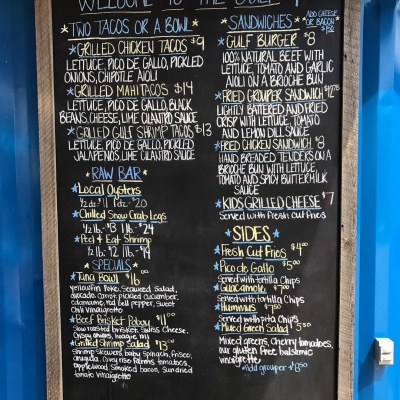 WELCOME TO THE GULF
TWO TACOS OR A BOWL
GRILLED CHICKEN TACOS $9
LETTUCE, PICO DE GALLO, PICKLED
ONIONS, CHIPOTLE AIOLI
GRILLED MAHI TACOS $14
LETTUCE, PICO DE GALLO, BLACK
BEANS, CHEESE, LIME CILANTRO SAUCE
GRILLED GULF SHRIMP TACOS $13
LETTUCE, PICO DE GALLO, PICKLED
JALAPENOS, LIME CILANTRO SAUCE
RAW BAR
Local Oysters
1/2 dz. $11 1 dz. $20
Chilled Snow Crab Legs
1/2 lb. $13 1 lb. $24
Peel & Eat Shrimp
1/2 lb. $12 1 lb. $19
SPECIALS
Tuna Bowl $16.00
yellowfin Poke, Seaweed Salad,
avocado, carrot, pickled cucumber,
edamame, red bell pepper, sweet
chili vinaigrette
Beef Brisket Poboy $11.00
Slow roasted brisket, Swiss Cheese,
Crispy onions, hoagie
Grilled Shrimp Salad $13.00
Shrimp skewers, baby spinach, frisee,
arugula, tomatoes,
applewood Smoked bacon, Sundried
tomato vinaigrette
SANDWICHES
ADD CHEESE
OR BACON
GULF BURGER $8
100% NATURAL BEEF WITH
LETTUCE, TOMATO AND GARLIC
AIOLI ON A BRIOCHE BUN
FRIED GROUPER SANDWICH
LIGHTLY BATTERED AND FRIED
CRISP WITH LETTUCE, TOMATO
AND LEMON DILL SAUCE
FRIED CHICKEN SANDWICH $8
HAND BREADED TENDERS ON A
BRIOCHE BUN WITH LETTUCE,
TOMATO AND SPICY BUTTERMILK
SAUCE
KIDS GRILLED CHEESE $7
Served with Fresh Cut Fries
SIDES
Fresh Cut Fries $4.00
Pico de Gallo $5.00
Served with tortilla Chips
Guacamole
Served with tortilla Chips
Hummus
Served with pita Chips
Mixed Green Salad
Mixed greens, Cherry tomatoes,
our gluten free balsamic
vinaigrette
Add grouper